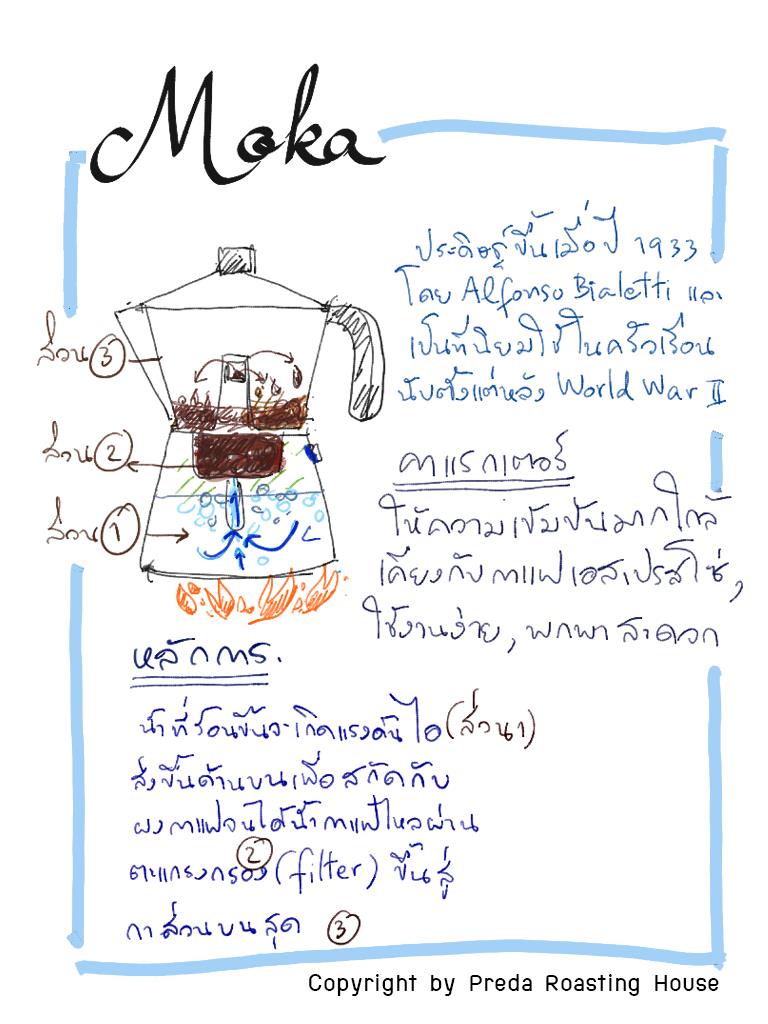 Moka
ประดิษฐ์ขึ้นเมื่อปี 1933
โดย Alfonso Bialetti และ
เป็นที่นิยมใช้ในครัวเรือน
นับตั้งแต่หลัง World War II
ส่วน 3
ส่วน 2
ส่วน 1
คาแรกเตอร์
ให้ความเข้มข้นมากใกล้
เคียงกับกาแฟเอสเปรสโซ่,
ใช้งานง่าย, พกพาสะดวก
หลักการ.
น้ำที่ร้อนขึ้นจะเกิดแรงดันไอ (ส่วน 1)
ส่งขึ้นด้านบนเพื่อสกัดกับ
ผงกาแฟจนได้น้ำกาแฟไหลผ่าน
ตะแกรงกรอง 2 (filter) ขึ้นสู่
กาส่วนบนสุด 3
Copyright by Preda Roasting House